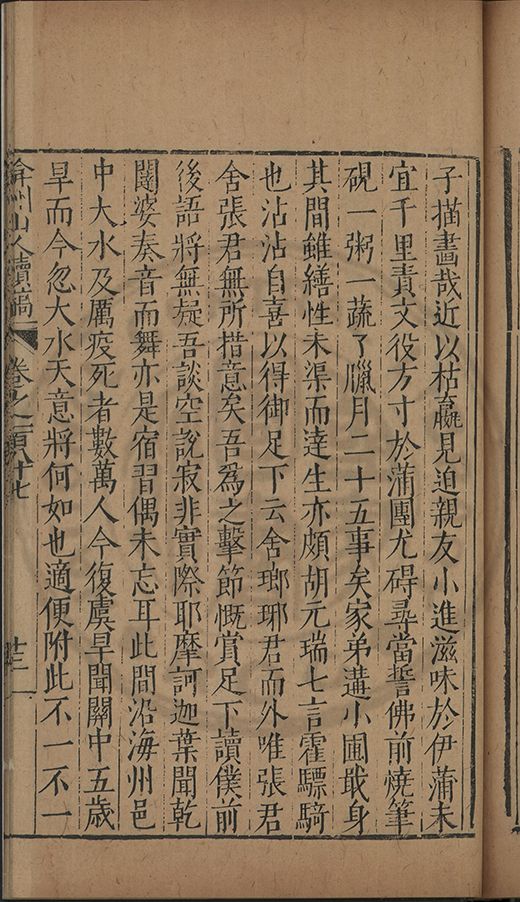 子描畫哉近以枯羸見迫親友小進滋味於伊蒲未
宜千里責文役方寸於蒲團尤碍尋當誓佛前燒筆
硯一粥一蔬了臘月二十五事矣家弟遘小圃戢身
其間雖繕性未渠而達生亦頗胡元瑞七言霍驃騎
也沾沾自喜以得御足下云舍瑯琊君而外唯張君
舍張君無所措意矣吾爲之擊節慨賞足下讀僕前
後語將無疑吾談空說寂非實際耶摩訶迦葉聞乾
闥婆奏音而舞亦是宿習偶未忘耳此間沿海州邑
中大水及厲疫死者數萬人今復虞旱聞關中五歲
旱而今忽大水天意將何如也適便附此不一不一
弇州山人續稿 卷之一百八十七 廿三